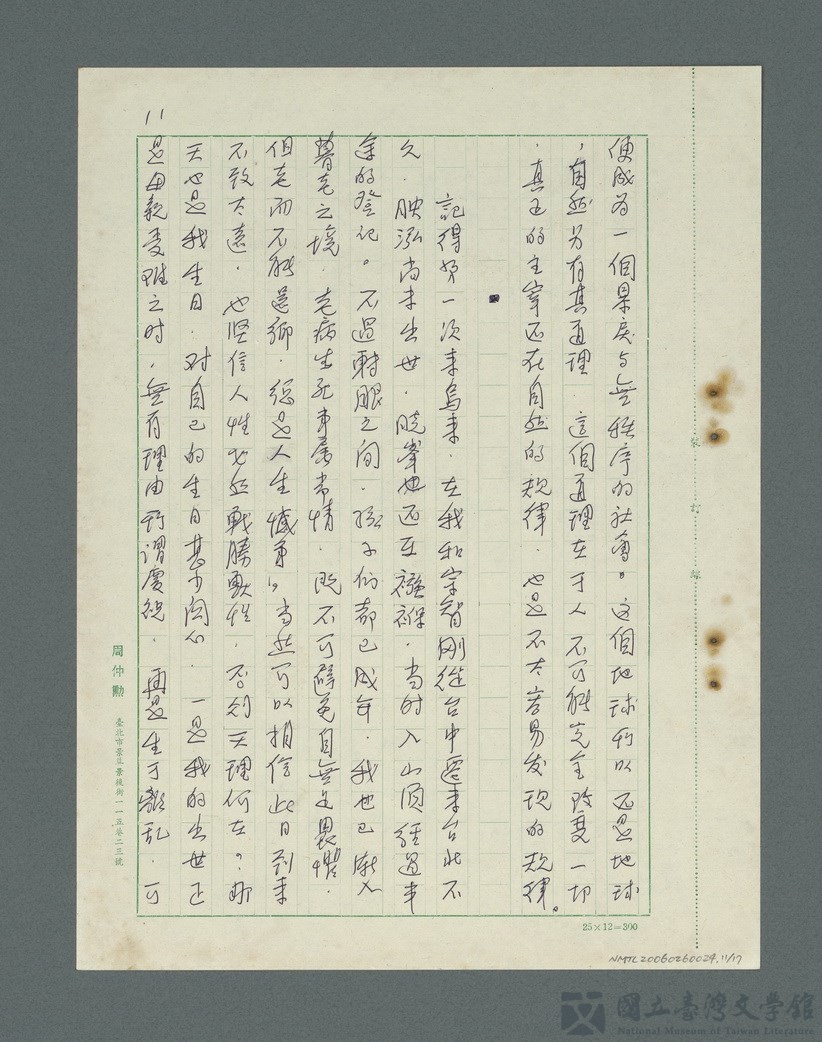 便成为一個暴戾与無秩序的社會。这個地球所以还是地球
，自然另有其道理，這個道理在于人不可能完全改变一切
，真正的主宰还在自然的規律，也是不太容易发现的規律。
記得第一次来烏来，在我和宗智剛從台中遷来台北不
久，映泓尚未出世，曉峯也还在襁褓，当时入山須經過申
的登记。不過轉眼之间，孩子们都已成年，我也已漸入
耄之境，老病生死本属常情，既不可避免自無足畏懼，
但老而不能還鄉，總是人生憾事，当然可以相信此日到来
不致太遠，也坚信人性必然戰勝獸性，否則天理何在？那
天也是我生日，对自己的生日甚少関心，一是我的出世正
是母親受难之时，無有理由所谓慶祝，再是生于離乱，可
11
周仲勳
臺北市景美景後街一一五巷二三號
裝 訂 線
25×12=300
NMTL20060260024.11/17
國立臺灣文學館
National Museum of Taiwan Literature